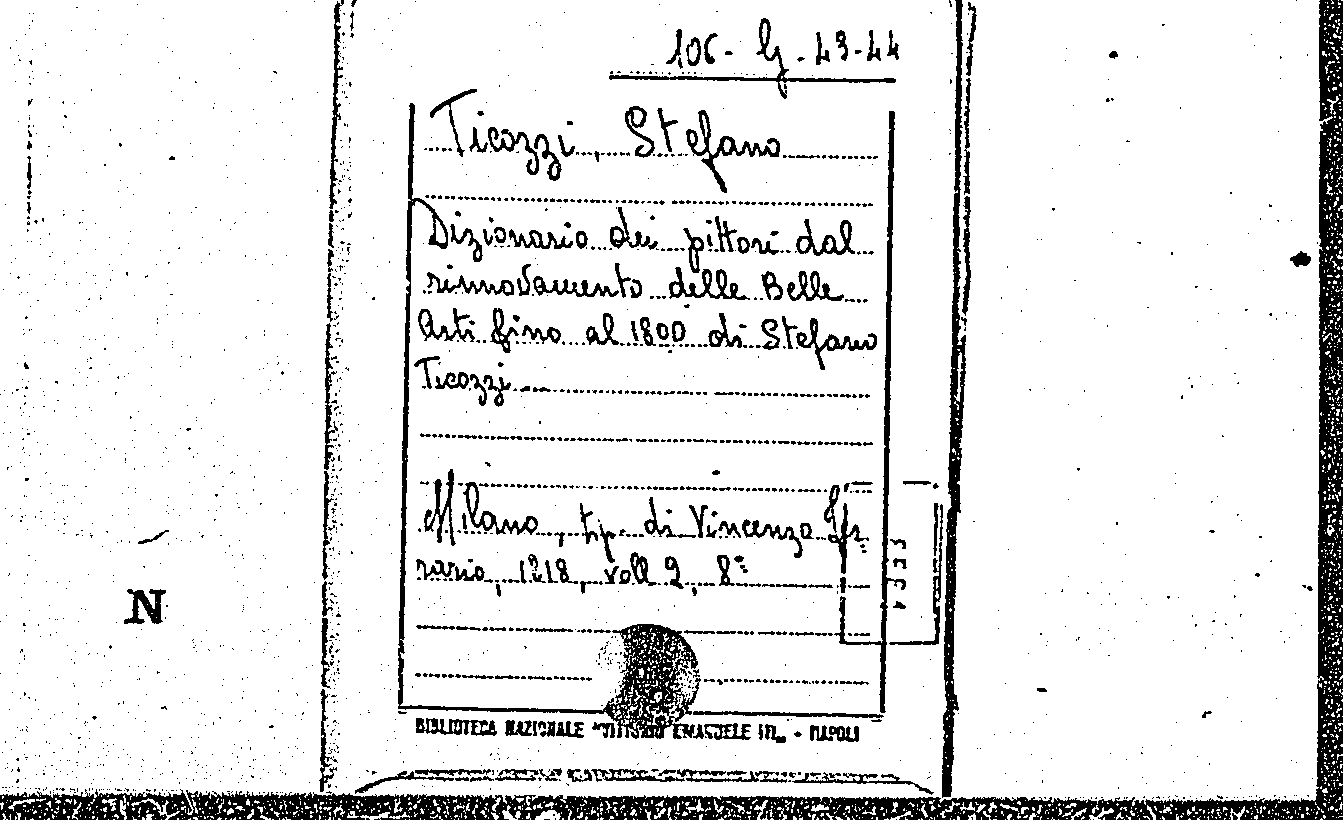 106-G-43-44
Ticozzi, Stefano
Dizionario dei pittori dal
rinnovamento delle Belle
Arti fino al 1800 di Stefano
Ticozzi...
Milano, tip. di Vincenzo Fer
rario, 1818, voll 2, 8º
N
BIBLIOTECA NAZIONALE "VITTORIO EMANUELE III„ - NAPOLI